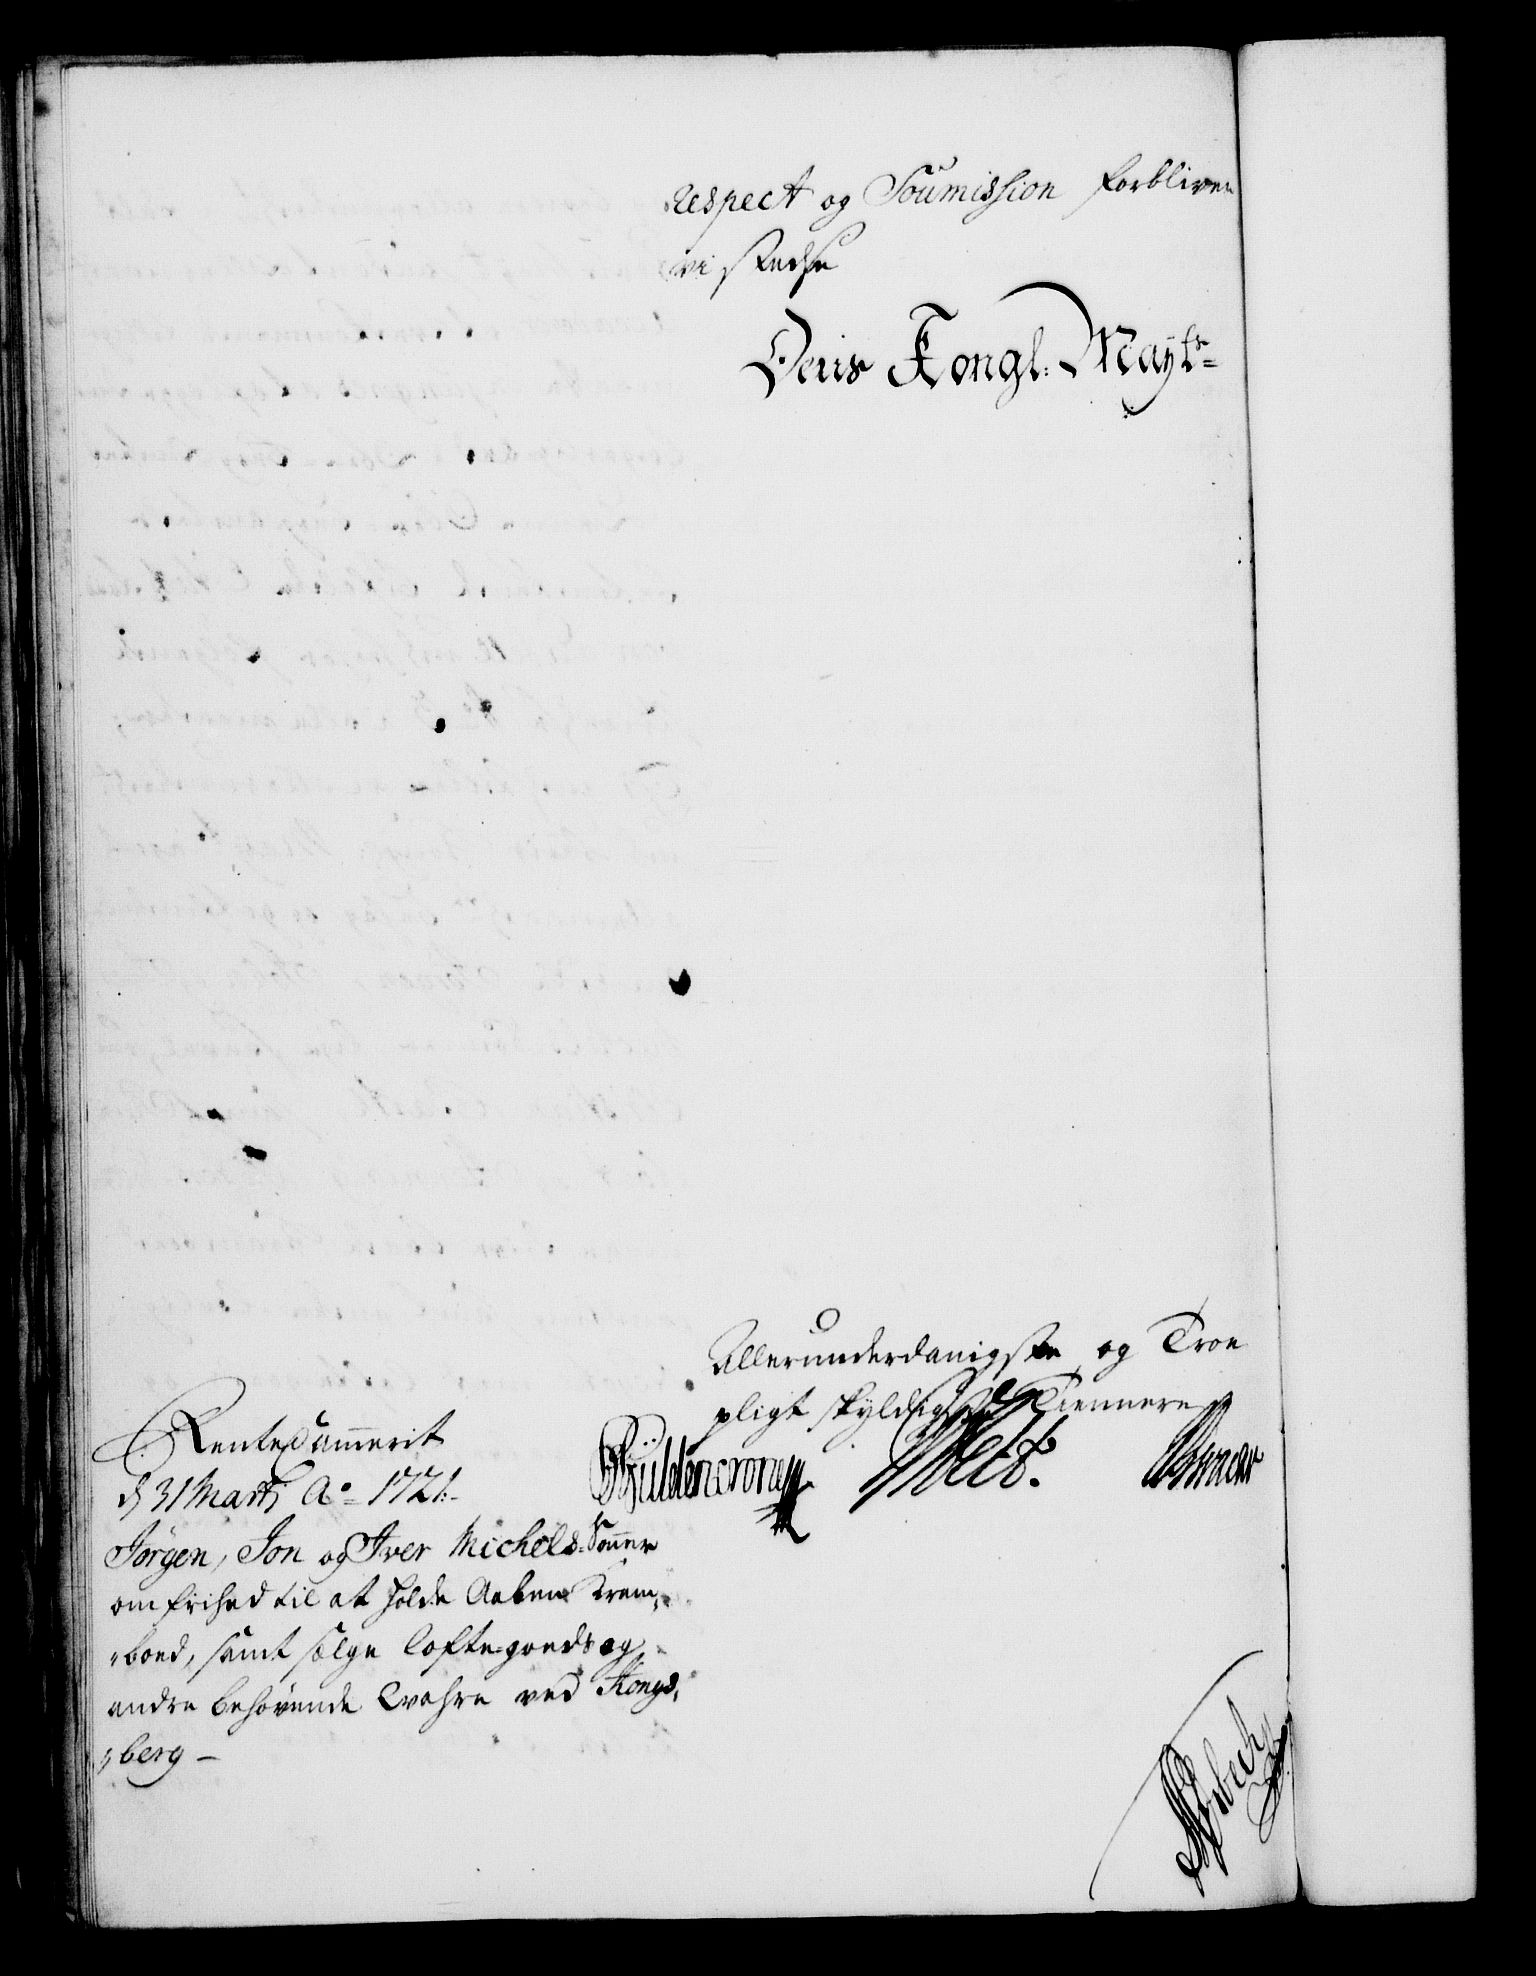 respect og Soumission forblive
vi stedse
Deris Kongl: Mayts=
Allerunderdanigste og Troe
pligt skyldigste Tiennere
RenteCammerit
d 31 Marti Ao= 1721.
Güldencrone
Jörgen, Jon og Iver Michels-Sönner
om frihed til at holde Aaben Kram,
"boed, samt sælge Lofte-goeds og
andre behövende Wahre ved Kongs,
"berg -